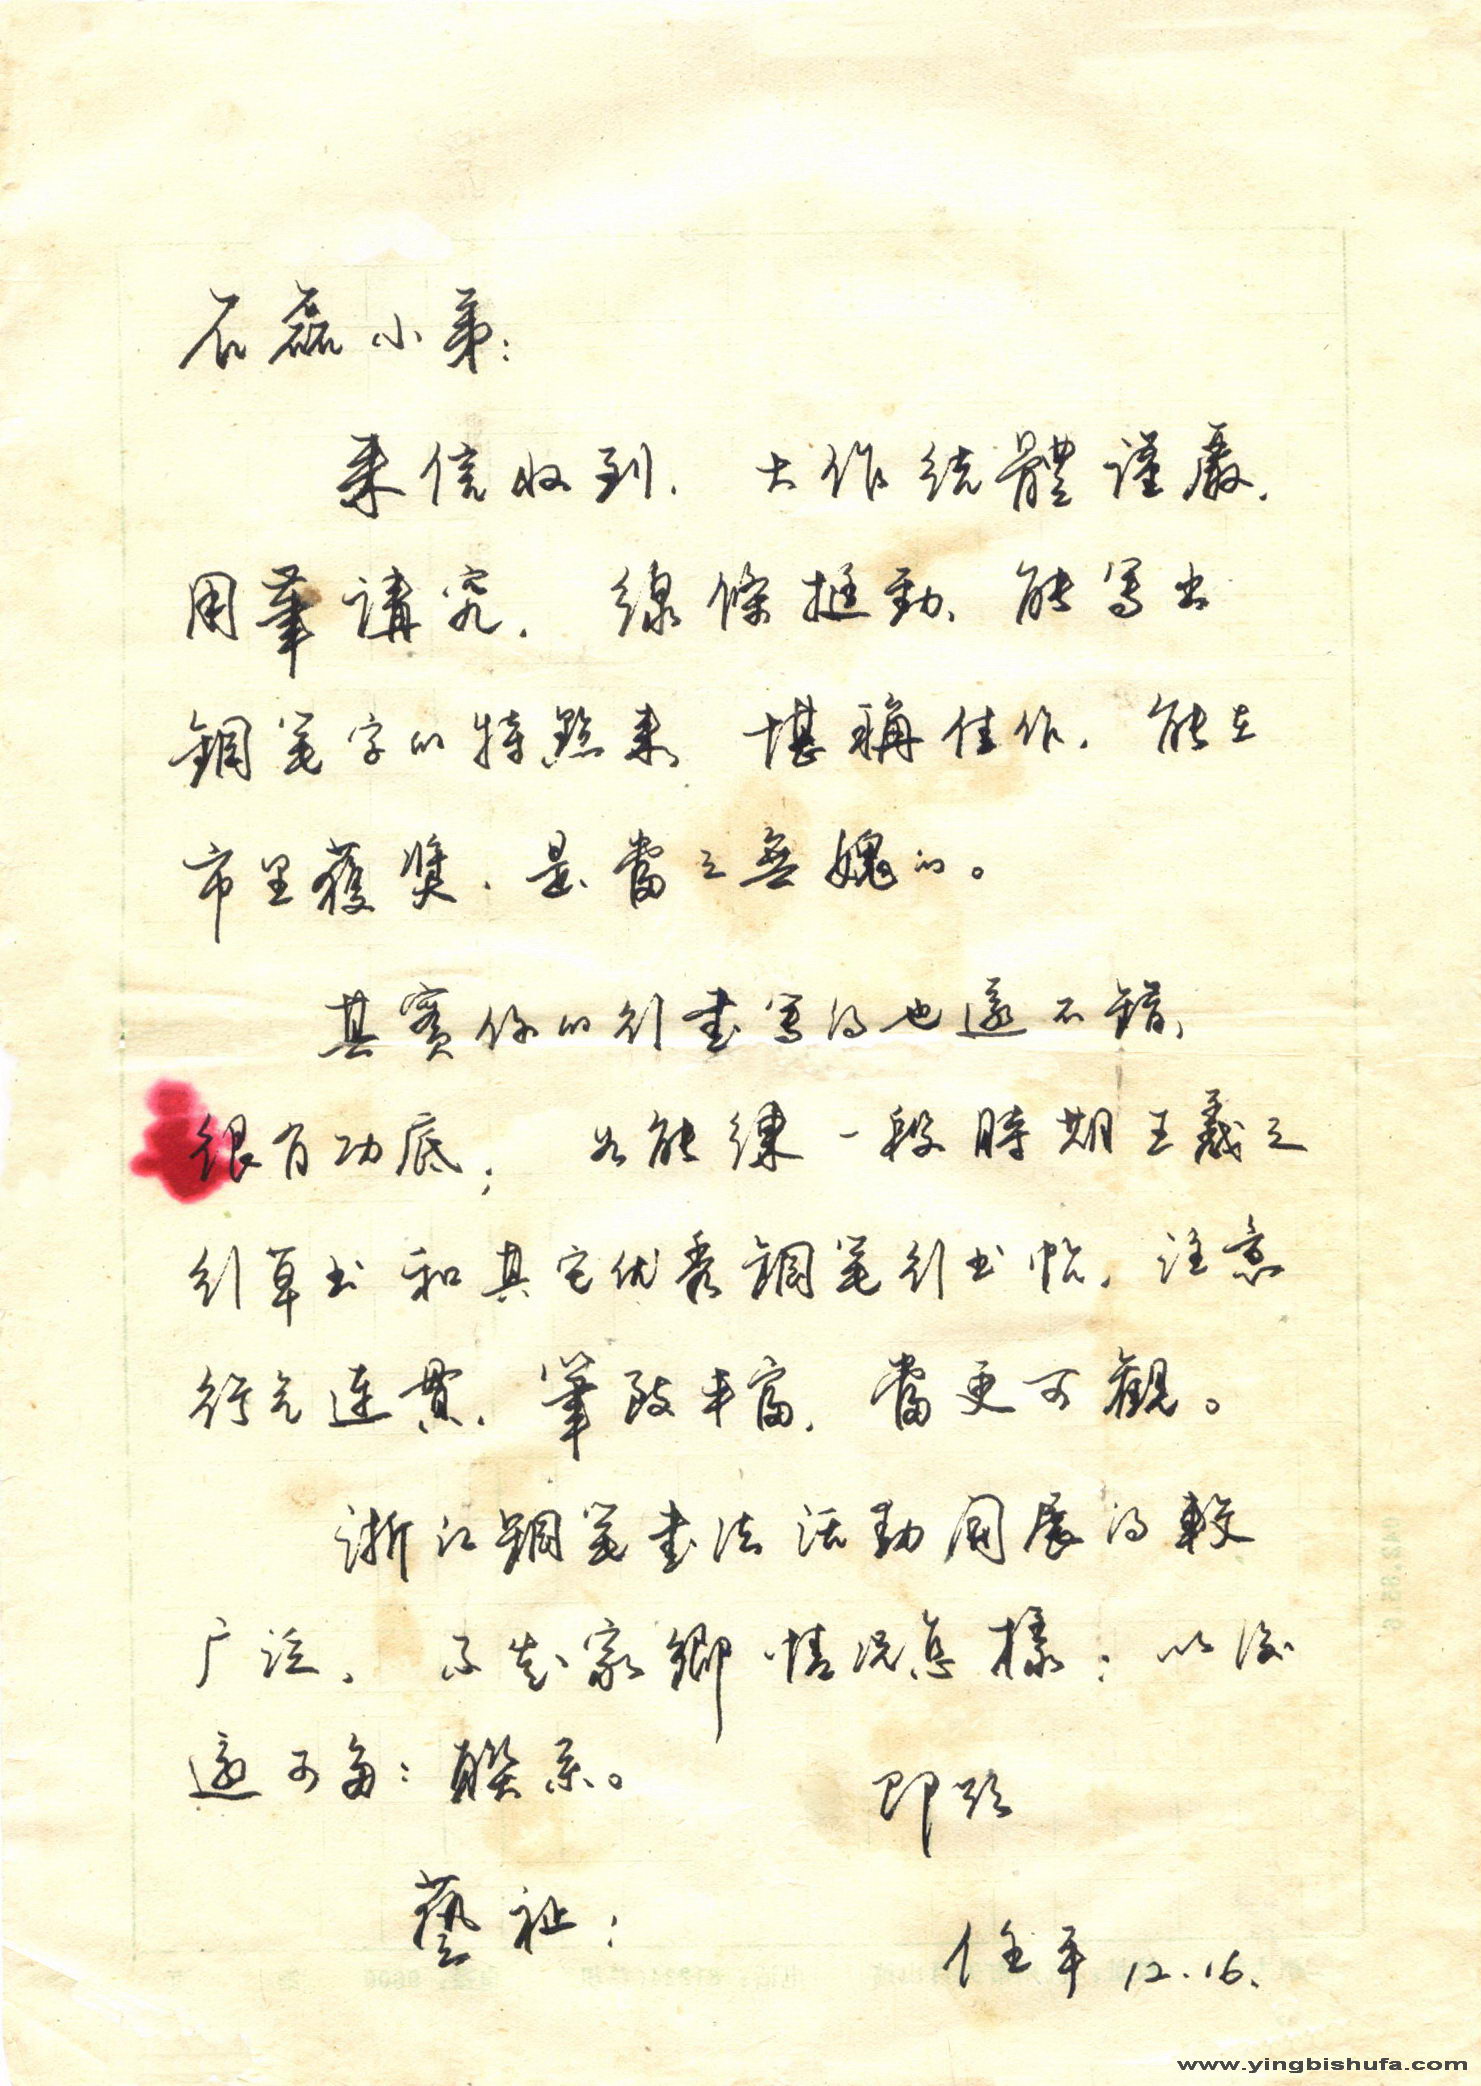 石磊小弟：
来信收到，大作统體謹嚴，
用筆講究，線條挺勁，能写出
鋼笔字的特點来，堪稱佳作，能在
市里獲獎，是當之無愧的。
其實你的行書写得也還不錯，
很有功底；若能練一段時期王羲之
行草书和其它优秀鋼笔行书帖，注意
行气连貫，筆致丰富，當更可觀。
浙江鋼笔書法活動開展得較
广泛，不知家鄉情况怎樣：以後
還可多：聯系。 即頌
藝祉！
任平 12.16.
www.yingbishufa.com